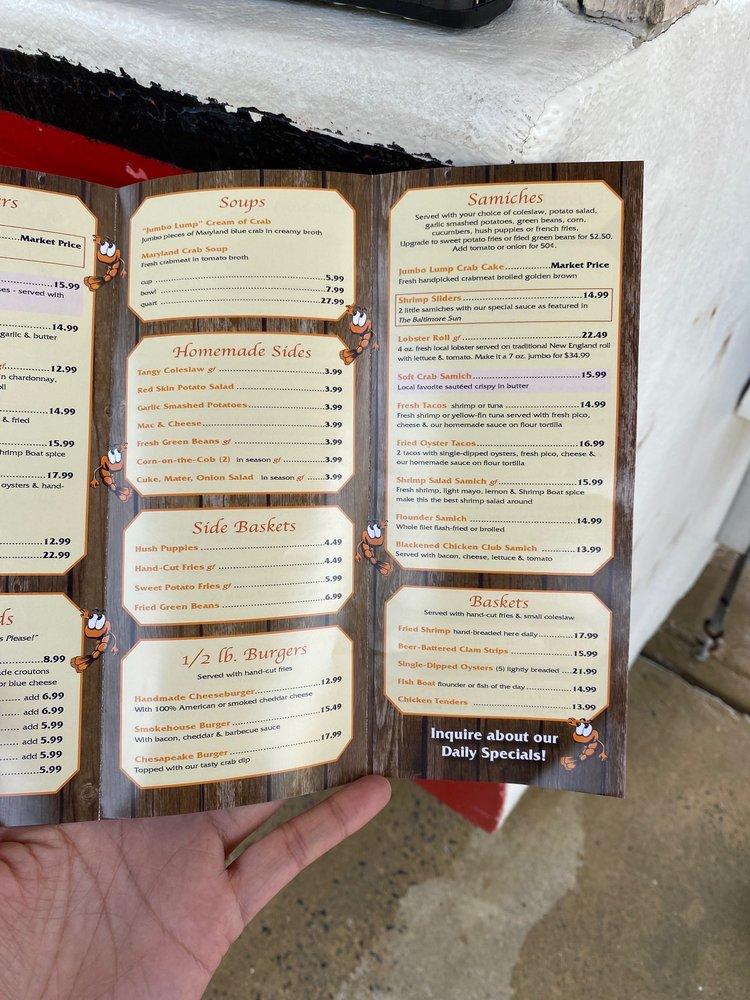 rs
Market Price
15.99
ses - served with
14.99
garlic & butter
12.99
n chardonnay,
oll
14.99
& fried
15.99
hrimp Boat spice
17.99
oysters & hand-
12.99
22.99
ds
s Please!"
8.99
de croutons
or blue cheese
add 6.99
add 6.99
add 5.99
add 5.99
add 5.99
5.99
Soups
"Jumbo Lump" Cream of Crab
Jumbo pieces of Maryland blue crab in creamy broth
Maryland Crab Soup
Fresh crabmeat in tomato broth
cup 5.99
bowl 7.99
quart 27.99
Homemade Sides
Tangy Coleslaw gf 3.99
Red Skin Potato Salad 3.99
Garlic Smashed Potatoes 3.99
Mac & Cheese 3.99
Fresh Green Beans gf 3.99
Corn-on-the-Cob (2) in season gf 3.99
Cuke, Mater, Onion Salad in season gf 3.99
Side Baskets
Hush Puppies 4.49
Hand-Cut Fries gf 4.49
Sweet Potato Fries gf 5.99
Fried Green Beans 6.99
1/2 lb. Burgers
Served with hand-cut fries
Handmade Cheeseburger 12.99
With 100% American or smoked cheddar cheese
Smokehouse Burger 15.49
With bacon, cheddar & barbecue sauce
Chesapeake Burger 17.99
Topped with our tasty crab dip
Samiches
Served with your choice of coleslaw, potato salad,
garlic smashed potatoes, green beans, corn,
cucumbers, hush puppies or french fries.
Upgrade to sweet potato fries or fried green beans for $2.50.
Add tomato or onion for 50¢.
Jumbo Lump Crab Cake Market Price
Fresh handpicked crabmeat broiled golden brown
Shrimp Sliders 14.99
2 little samiches with our special sauce as featured in
The Baltimore Sun
Lobster Roll gf 22.49
4 oz. fresh local lobster served on traditional New England roll
with lettuce & tomato. Make it a 7 oz. jumbo for $34.99
Soft Crab Samich 15.99
Local favorite sautéed crispy in butter
Fresh Tacos shrimp or tuna 14.99
Fresh shrimp or yellow-fin tuna served with fresh pico,
cheese & our homemade sauce on flour tortilla
Fried Oyster Tacos 16.99
2 tacos with single-dipped oysters, fresh pico, cheese &
our homemade sauce on flour tortilla
Shrimp Salad Samich gf 15.99
Fresh shrimp, light mayo, lemon & Shrimp Boat spice
make this the best shrimp salad around
Flounder Samich 14.99
Whole filet flash-fried or broiled
Blackened Chicken Club Samich 13.99
Served with bacon, cheese, lettuce & tomato
Baskets
Served with hand-cut fries & small coleslaw
Fried Shrimp hand-breaded here daily 17.99
Beer-Battered Clam Strips 15.99
Single-Dipped Oysters (5) lightly breaded 21.99
Fish Boat flounder or fish of the day 14.99
Chicken Tenders 13.99
Inquire about our
Daily Specials!